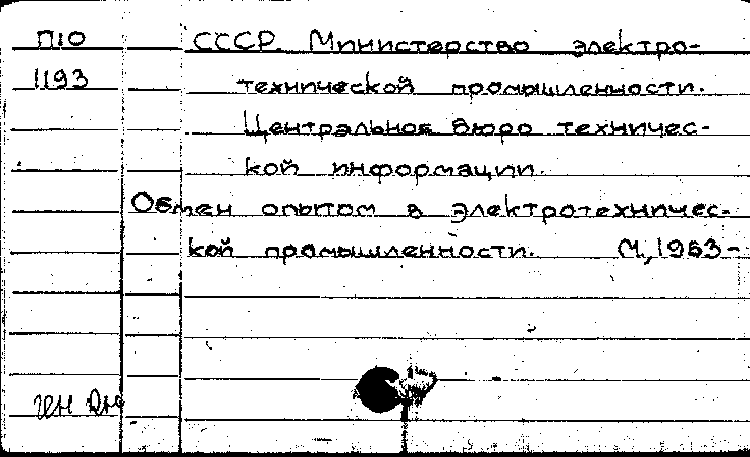 П10 СССР. Министерство электро-
1193 технической промышленности.
Центральное бюро техничес-
кой информации.
Обмен опытом в электротехничес-
кой промышленности. М., 1953-